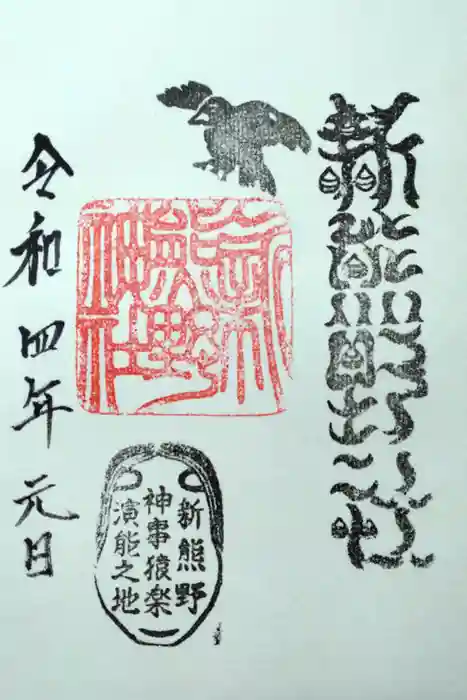 新熊野
新熊野神社
新熊野
神事猿楽
演能之地
令和四年元日